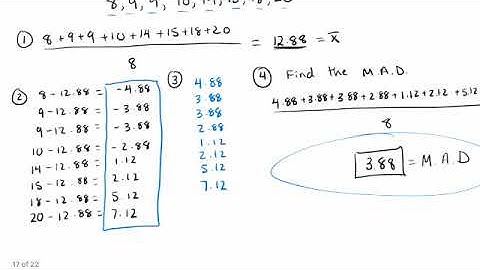 8, 9, 9, 10, 14, 15, 18, 20
① 8+9+9+10+14+15+18+20
= 12.88 = x̄
8
② 8-12.88 = -4.88
9-12.88 = -3.88
9-12.88 = -3.88
10-12.88 = -2.88
14-12.88 = 1.12
15-12.88 = 2.12
18-12.88 = 5.12
20-12.88 = 7.12
③ 4.88
3.88
3.88
2.88
1.12
2.12
5.12
7.12
④ Find the M.A.D.
4.88+3.88+3.88+2.88+1.12+2.12+5.12
8
3.88 = M.A.D
17 of 22